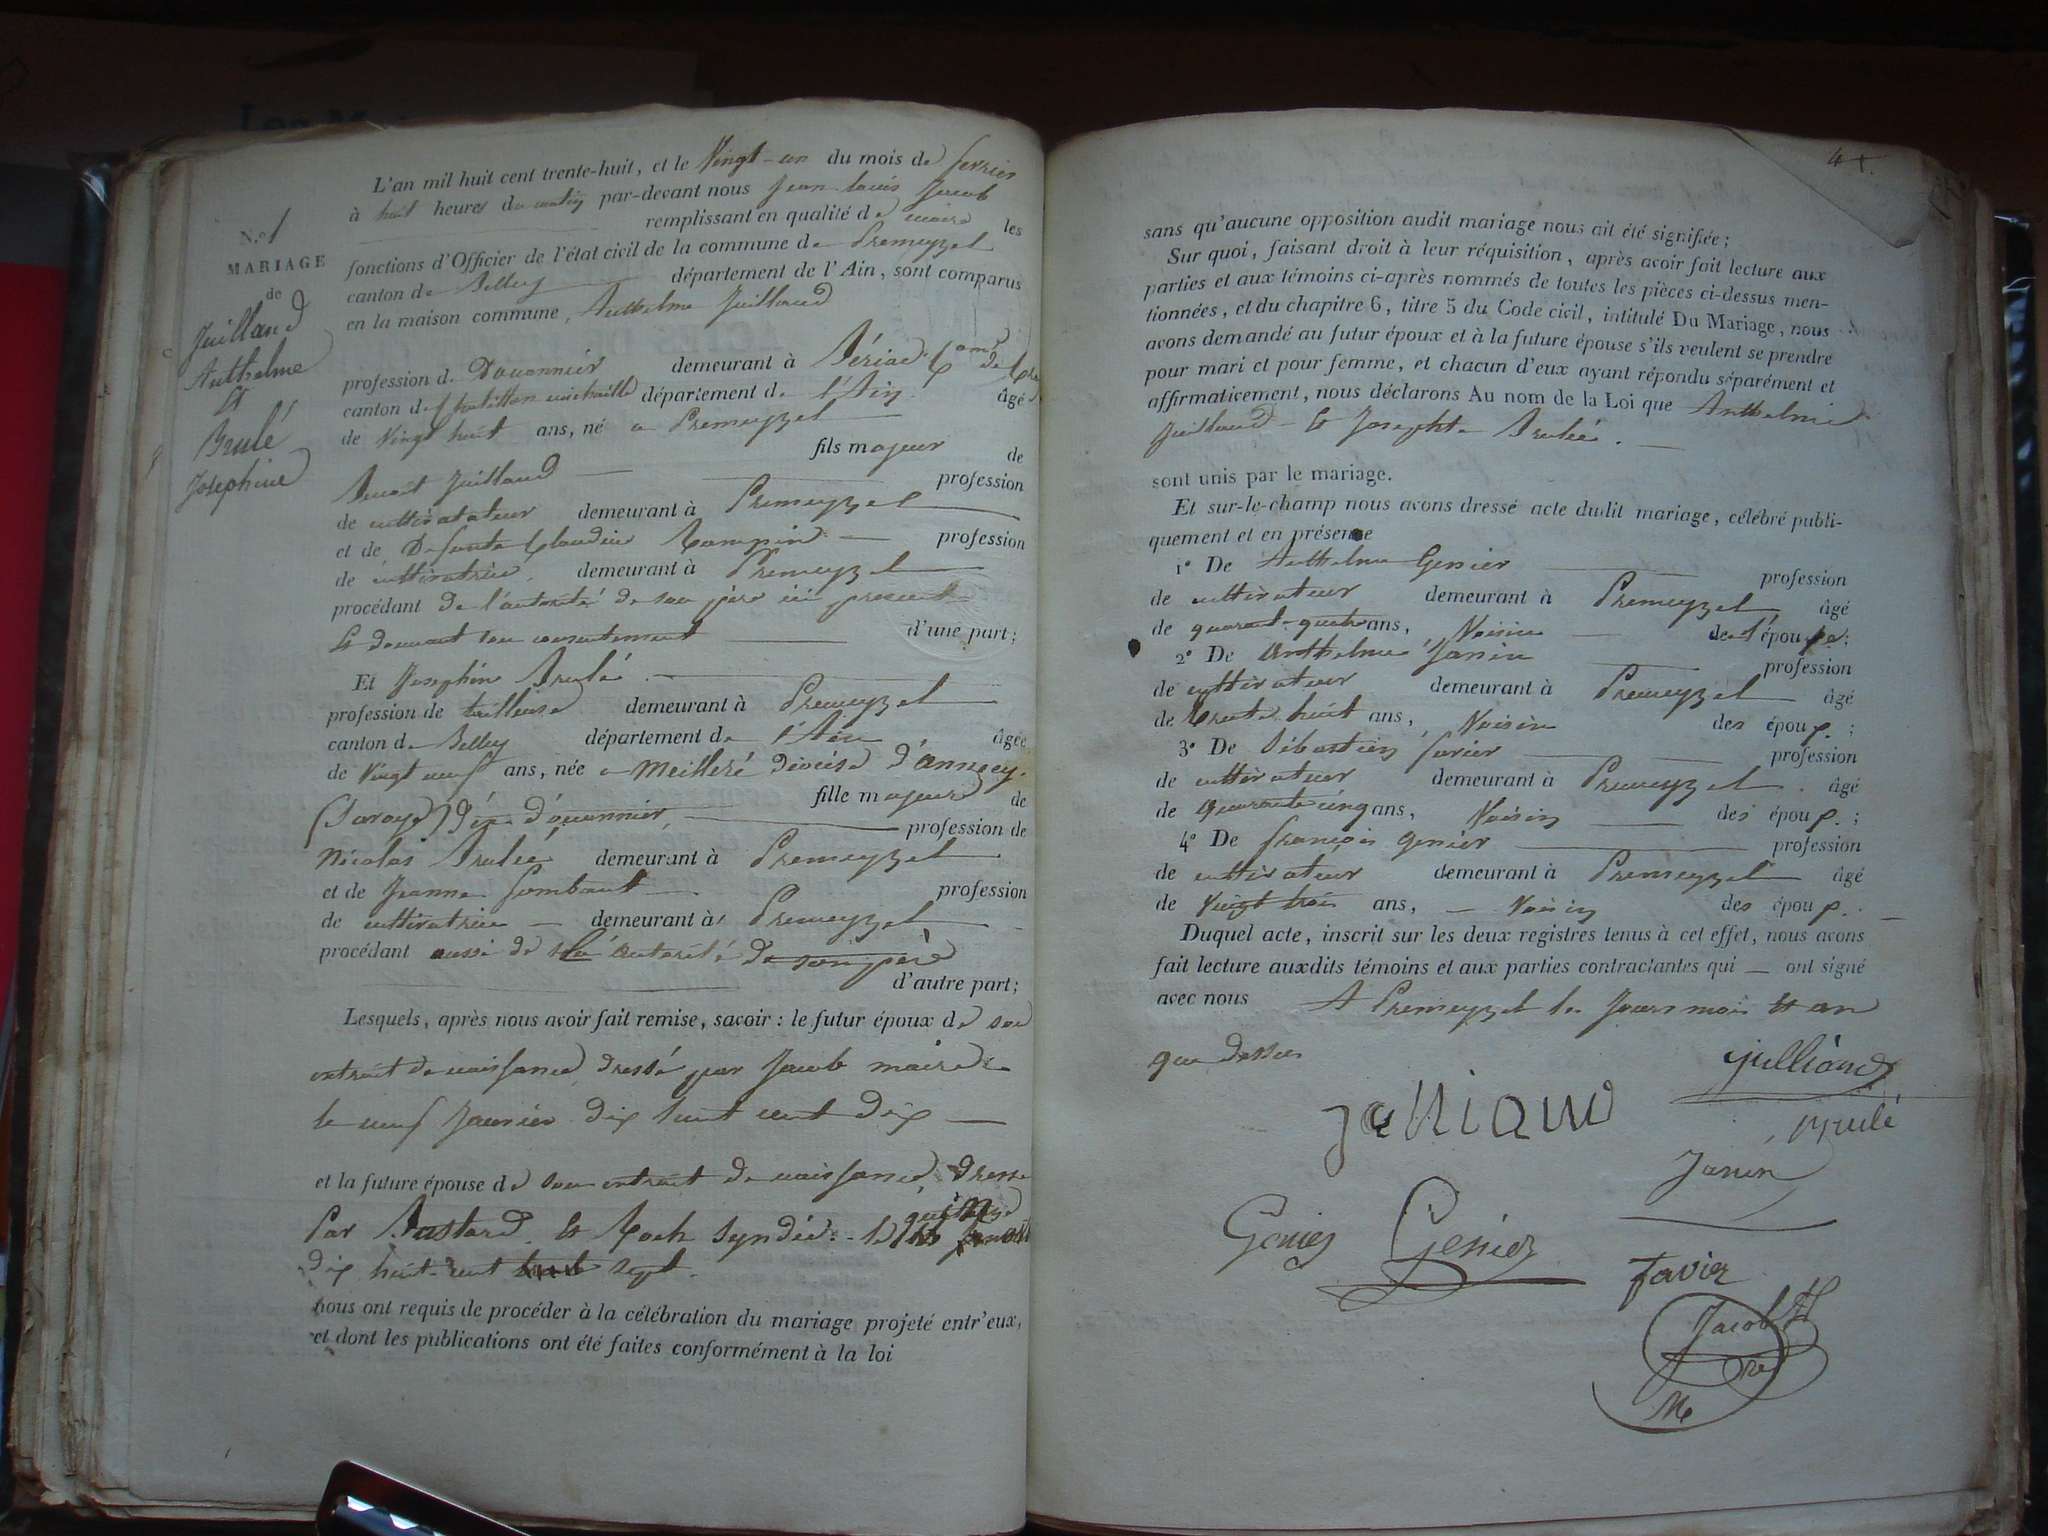 N.º 1
MARIAGE
de
Juilland
Anthelme
Et
Brulé
Josephine
L'an mil huit cent trente-huit, et le Vingt-un du mois de fevrier
à huit heures du matin par-devant nous Jean Louis Jacob
remplissant en qualité de maire les
fonctions d'Officier de l'état civil de la commune de Premeyzel
canton de Belley département de l'Ain, sont comparus
en la maison commune, Anthelme Juilland
profession d. Douannier demeurant à
canton de Chatillon michaille département de l'Ain. âgé
de Vingt huit ans, né a Premeyzel
fils majeur de
Benoit Juilland profession
de cultivatateur demeurant à Premeyzel
et de Defunte Claudine profession
de cultivatrice. demeurant à Premeyzel
procédant de l'autorité de son père ici present
Et donnant son consentement d'une part;
Et Josephine Brulé
profession de tailleuse demeurant à Premeyzel
canton de Belley département de l'Ain âgée
de Vingt neuf ans, née a Meilleré d'Annecy.
(Savoye) fille majeure de
profession de
Nicolas Brulée demeurant à Premeyzel
et de Jeanne profession
de cultivatrice demeurant à Premeyzel
procédant aussi de autorité de son père
d'autre part;
Lesquels, après nous avoir fait remise, savoir : le futur époux de son
extrait de naissance dressé par Jacob maire
le neuf Janvier dix huit cent dix
et la future épouse de son extrait de naissance, dressé
Par Et Roch Syndic le quinze
dix huit cent sept.
nous ont requis de procéder à la célébration du mariage projeté entr'eux,
et dont les publications ont été faites conformément à la loi
41.
sans qu'aucune opposition audit mariage nous ait été signifiée;
Sur quoi, faisant droit à leur réquisition, après avoir fait lecture aux
parties et aux témoins ci-après nommés de toutes les pièces ci-dessus men-
tionnées, et du chapitre 6, titre 5 du Code civil, intitulé Du Mariage, nous
avons demandé au futur époux et à la future épouse s'ils veulent se prendre
pour mari et pour femme, et chacun d'eux ayant répondu séparément et
affirmativement, nous déclarons Au nom de la Loi que Anthelme
Juilland Et Josephte Brulée.
sont unis par le mariage.
Et sur-le-champ nous avons dressé acte dudit mariage, célébré publi-
quement et en présence
1º De Anthelme Genier profession
de cultivateur demeurant à Premeyzel âgé
de quarant-quatre ans, Voisin de l'épou ;
2º De Anthelme Janin profession
de cultivateur demeurant à Premeyzel âgé
de trente huit ans, Voisin des épou p. ;
3º De Sébastien favier profession
de cultivateur demeurant à Premeyzel. âgé
de quarante cinq ans, Voisin des épou p. ;
4º De françois genier profession
de cultivateur demeurant à Premeyzel âgé
de Vingt trois ans, Voisin des épou p.
Duquel acte, inscrit sur les deux registres tenus à cet effet, nous avons
fait lecture auxdits témoins et aux parties contractantes qui — ont signé
avec nous A Premeyzel les Jours mois et an
que dessus
Julliand
Julliand
Brulé
Janin
Genier Genier
Favier
Jacob
Mre